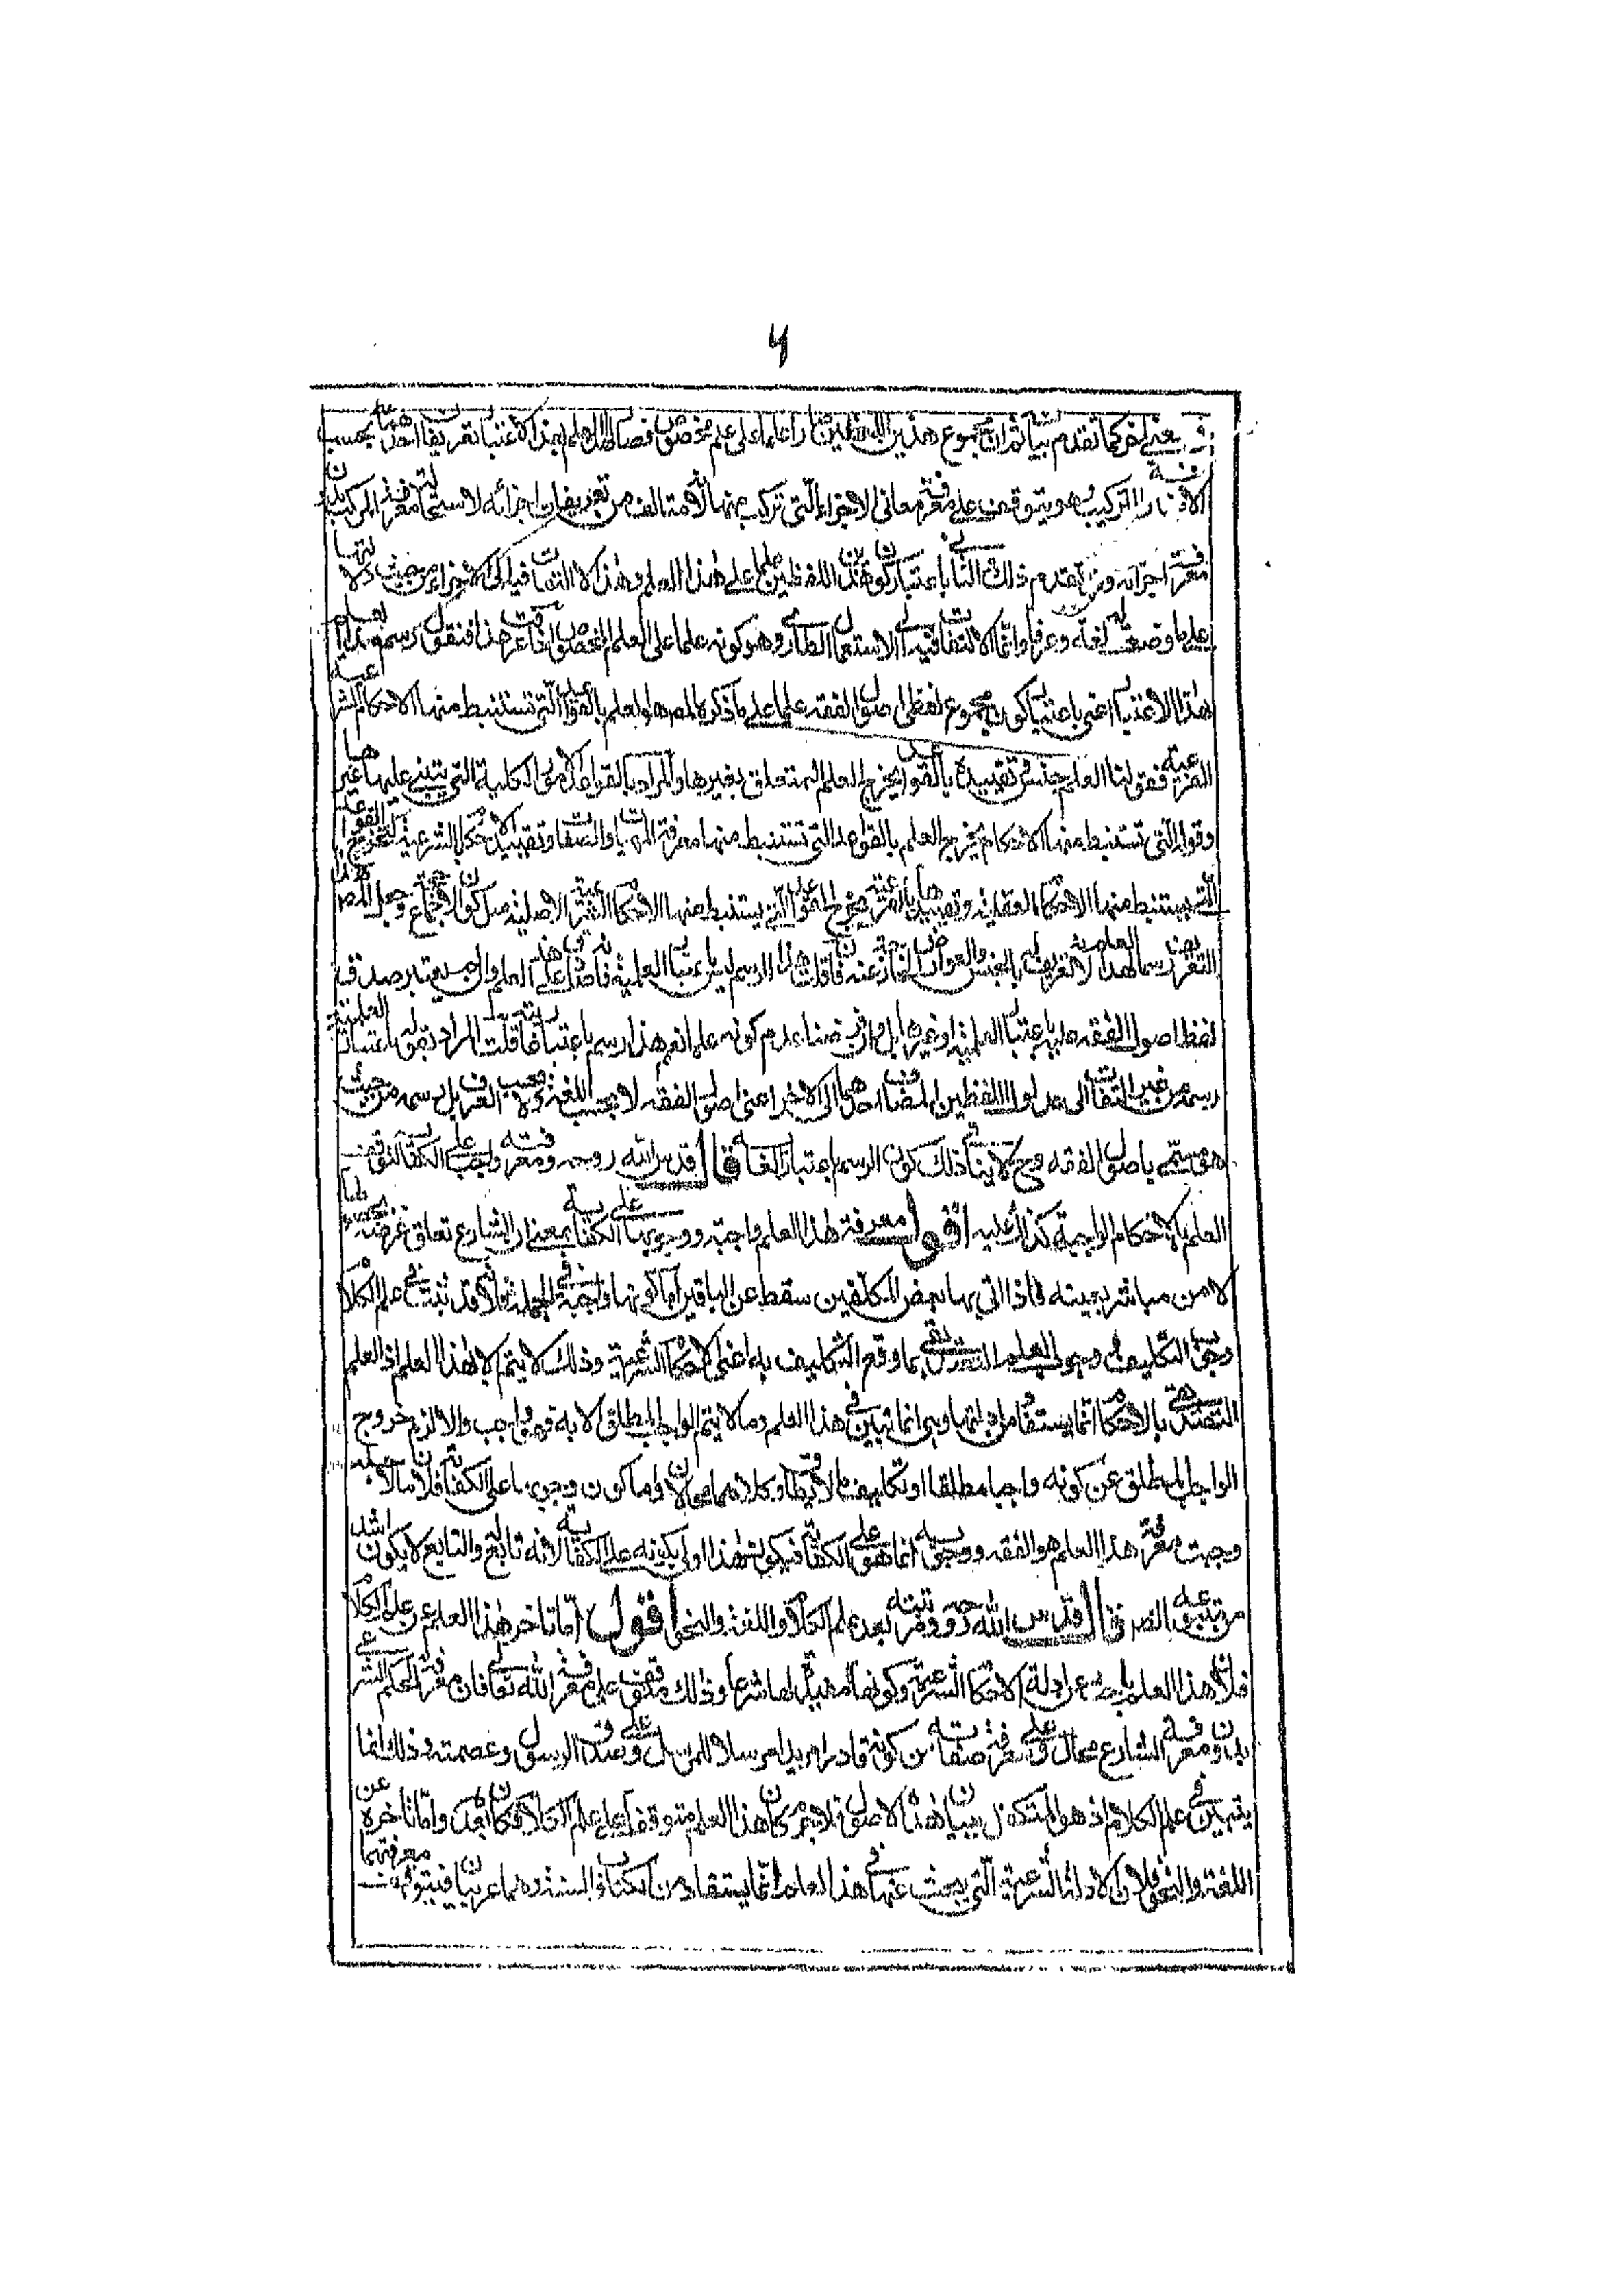 ٦
معنى اخر كما تقدم بيانه ثم ان مجموع هذين اللفظين صارا علما على علم مخصوص فصار لهذا العلم بهذا الاعتبار تعريفان احدهما بحسب
التركيب وهو يتوقف على معرفة معانى الاجزاء التى تركب منها لاستحالة معرفة المركب بدون
معرفة اجزائه وقد تقدم ذلك الثانى باعتبار كون هذين اللفظين علما على هذا العلم وهذا لا التفات فيه الى الاجزاء من حيث دلالتها
على ما وضعت له لغة وعرفا وانما الالتفات فيه الى الاستعمال الطارى وهو كونه علما على العلم المخصوص اذا عرفت هذا فنقول رسم هذا العلم
بهذا الاعتبار اعنى باعتبار كون مجموع لفظى اصول الفقه علما على ما ذكره المصر هو العلم بالقواعد التى تستنبط منها الاحكام الشرعية
الفرعية فقولنا العلم جنس وتقييده بالقواعد يخرج العلم المتعلق بغيرها والمراد بالقواعد الامور الكلية التى يبتنى عليها غيرها
وقوله التى تستنبط منها الاحكام يخرج العلم بالقواعد التى تستنبط منها معرفة المهيات والصفات وتقييد الاحكام بالشرعية لتخرج القواعد
التى يستنبط منها الاحكام العقلية وتقييدها بالفرعية يخرج القواعد التى يستنبط منها الاحكام الشرعية الاصلية مثل كون الاجماع حجة وجعل المصر هذا
التعريف رسما لهذا العلم لانه تعريف له بالجنس والعوارض الخارجة عنه فان قلت هذا الرسم ليس باعتبار العلمية فانه صادق على هذا العلم وان لم يعتبر صدق
لفظ اصول الفقه عليه باعتبار العلمية او غيرها بل وان فرضنا عدم كونه علما نعم هذا رسم باعتبار قلت المراد بقوله باعتبار العلمية
رسمه من غير التفات الى مدلول اللفظين المضاف احدهما الى الاخر اعنى اصول الفقه لا بحسب اللغة ولا بحسب العرف بل رسمه من حيث
هو مسمى باصول الفقه وح لا ينافى ذلك كون الرسم باعتبار الغاية قال قدس الله روحه ومعرفته واجبة على الكفاية لتوقف
العلم بالاحكام الواجبة كذلك عليه اقول معرفة هذا العلم واجبة ووجوبها على الكفاية بمعنى ان الشارع تعلق غرضه بتحصيلها
لا من مباشر بعينه فاذا اتى بها بعض المكلفين سقط عن الباقين اما كونها واجبة فى الجملة فلانه قد ثبت فى علم الكلام
وجوب التكليف ووجوب العلم التصديقى بما وقع التكليف به اعنى الاحكام الشرعية وذلك لا يتم الا بهذا العلم اذ العلم
التصديقى بالاحكام انما يستفاد من ادلتها وهى انما تبين فى هذا العلم وما لا يتم الواجب المطلق الا به فهو واجب والا لزم خروج
الواجب المطلق عن كونه واجبا مطلقا او تكليف ما لا يطاق وكلاهما محالان واما كون وجوبها على الكفاية فلان ما لاجله
وجبت معرفة هذا العلم هو الفقه ووجوبه انما هو على الكفاية فيكون هذا اولى بكونه على الكفاية لانه تابع له والتابع لا يكون اشد
من متبوعه قال قدس الله روحه ومرتبته بعد علم الكلام واللغة والنحو اقول اما تاخر هذا العلم عن علم الكلام
فلان هذا العلم باحث عن ادلة الاحكام الشرعية وكونها مفيدة لها شرعا وذلك متوقف على معرفة الله تعالى فان معرفة الحكم الشرعى
بدون معرفة الشارع محال وعلى معرفة صفاته من كونه قادرا مريدا مرسلا للرسل وعلى صدق الرسول وعصمته وذلك انما
يتبين فى علم الكلام اذ هو المتكفل ببيان هذه الاصول فلا جرم كان هذا العلم متوقفا على علم الكلام فكان بعده واما تاخره عن
اللغة والنحو فلان الادلة الشرعية التى يبحث عنها فى هذا العلم انما يستفاد من الكتاب والسنة وهما عربيان فيتوقف معرفتهما